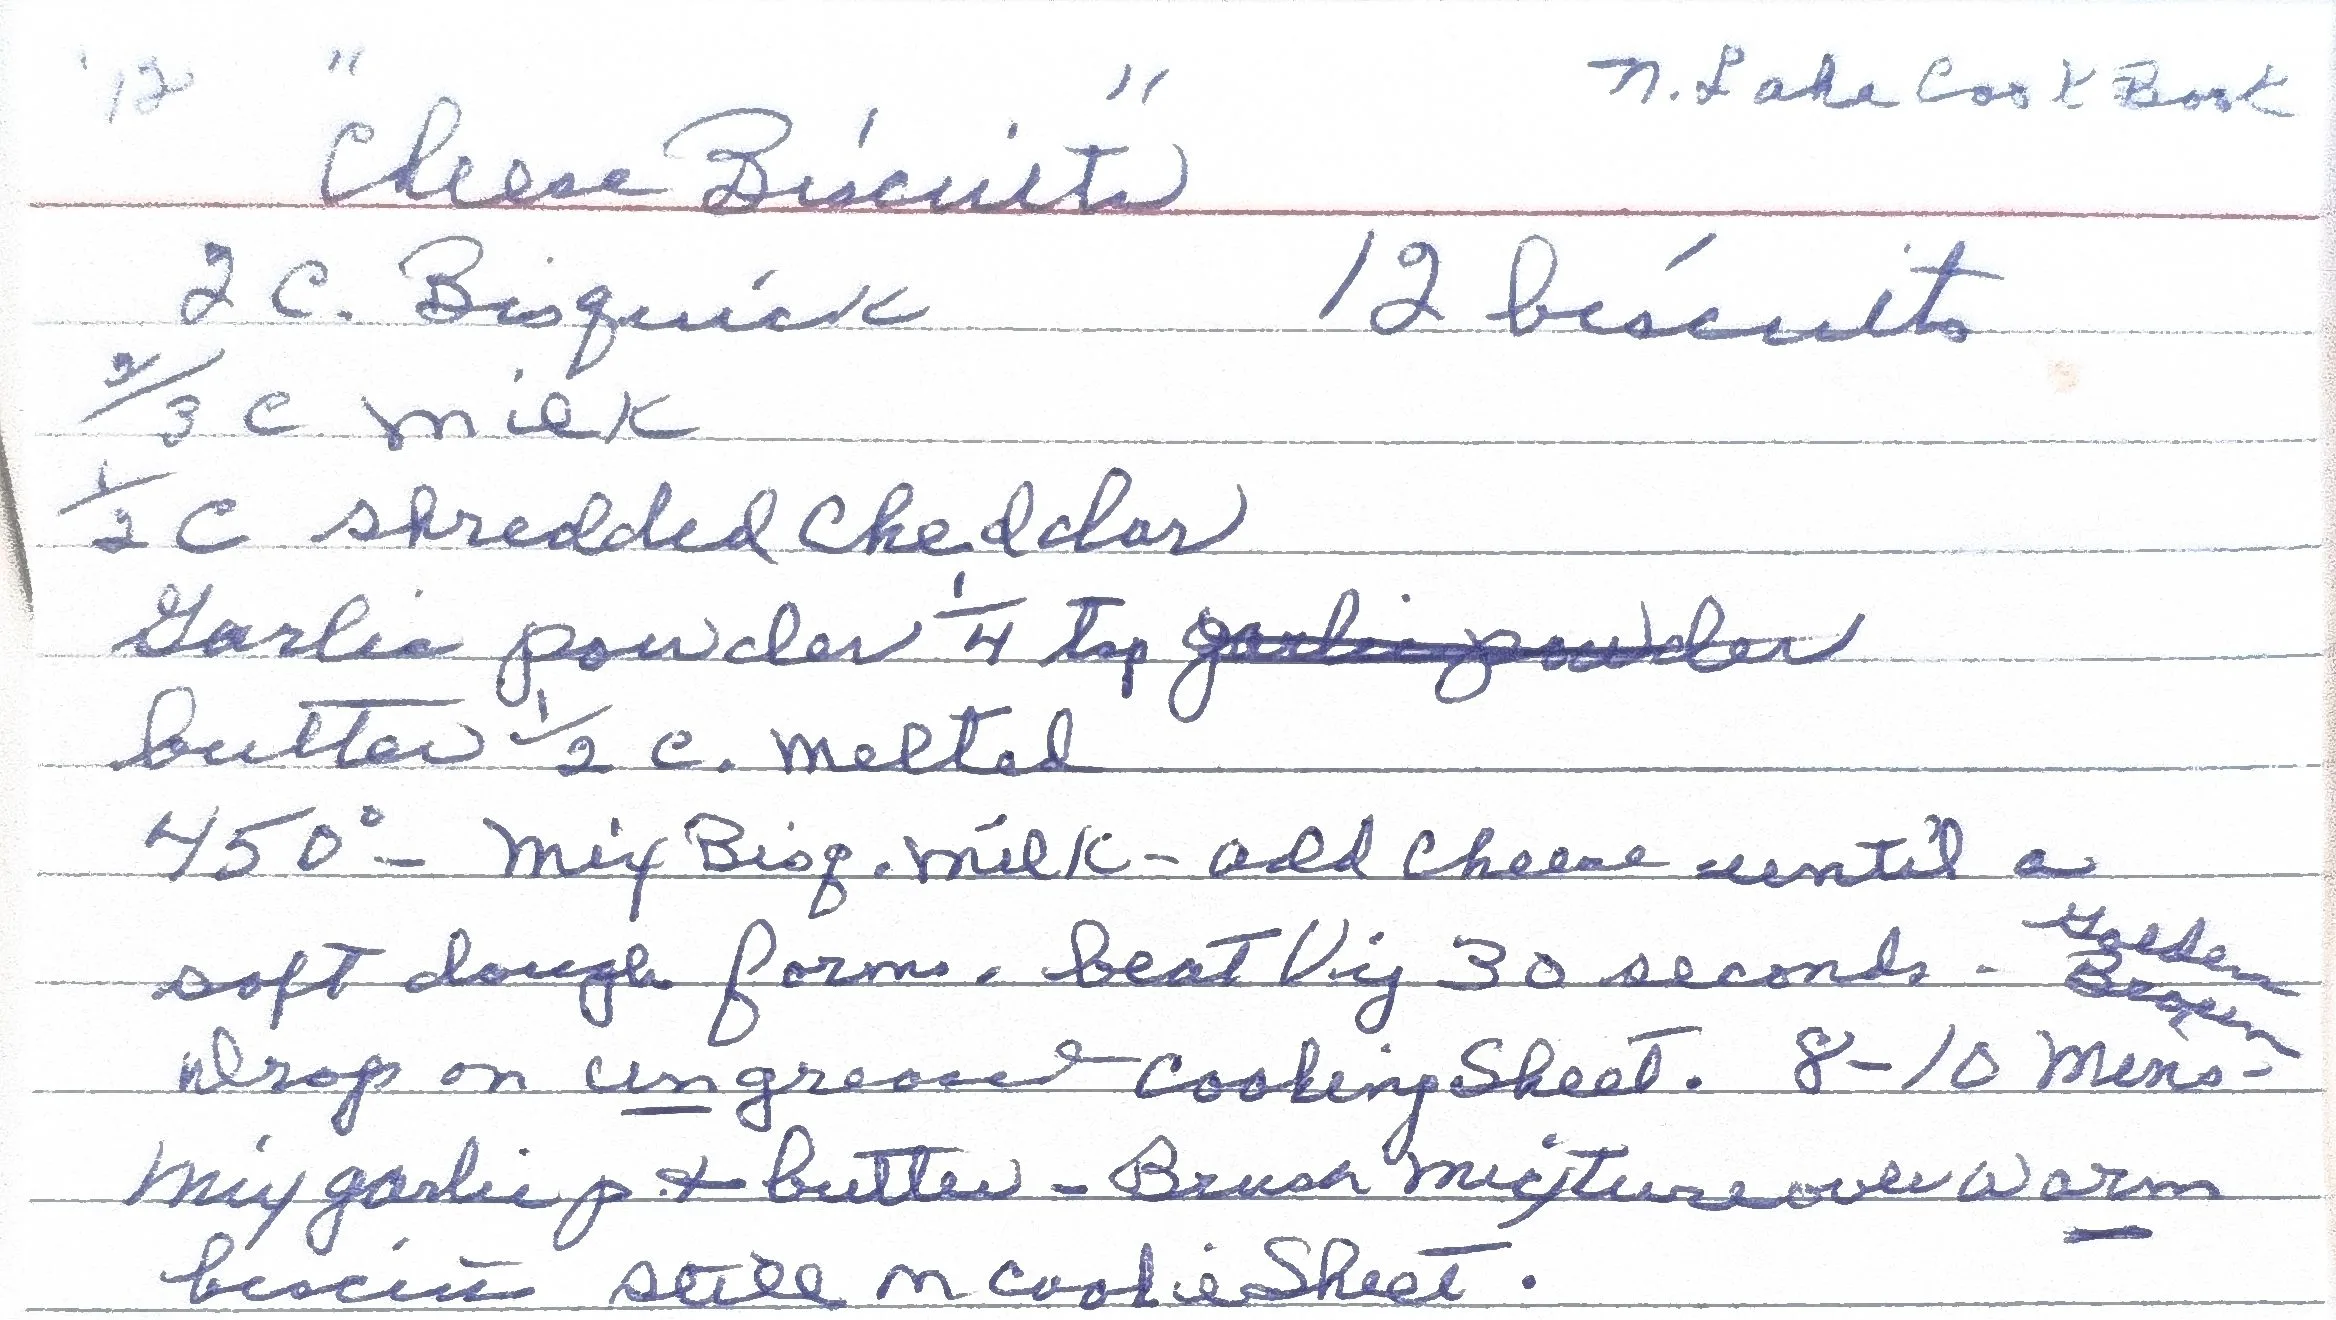 '12 "Cheese Biscuits" N. Lake Cook Book
2 C. Bisquick 12 biscuits
2/3 C milk
1/2 C shredded Cheddar
Garlic powder 1/4 tsp garlic powder
butter 1/2 c. melted
450° - Mix Bisq. milk - add cheese until a
soft dough forms. beat Vig 30 seconds - Golden Brown
Drop on ungreased cooking Sheet. 8-10 mins -
Mix garlic p. & butter - Brush mixture over warm
biscuits still on cookie Sheet.